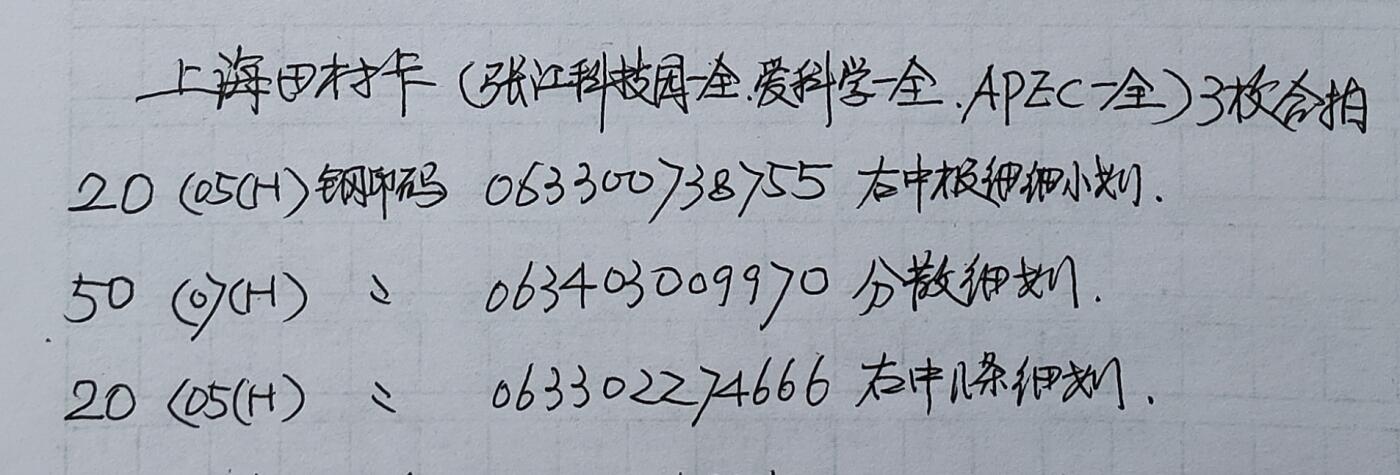 上海田村卡（张江科技园一全.爱科学一全.APEC一全）3枚合拍
20 (05(H) 钢印码 063300738755 右中极细细小划.
50 (07(H) 〃 063403009970 分散细划.
20 (05(H) 〃 063302274666 右中几条细划.